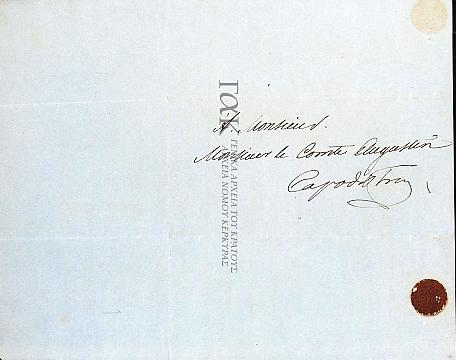 A. Monsieur.
Monsieur le Comte Augustin
Capodistria,
ΓΑΚ
ΓΕΝΙΚΑ ΑΡΧΕΙΑ ΤΟΥ ΚΡΑΤΟΥΣ
ΑΡΧΕΙΑ ΝΟΜΟΥ ΚΕΡΚΥΡΑΣ